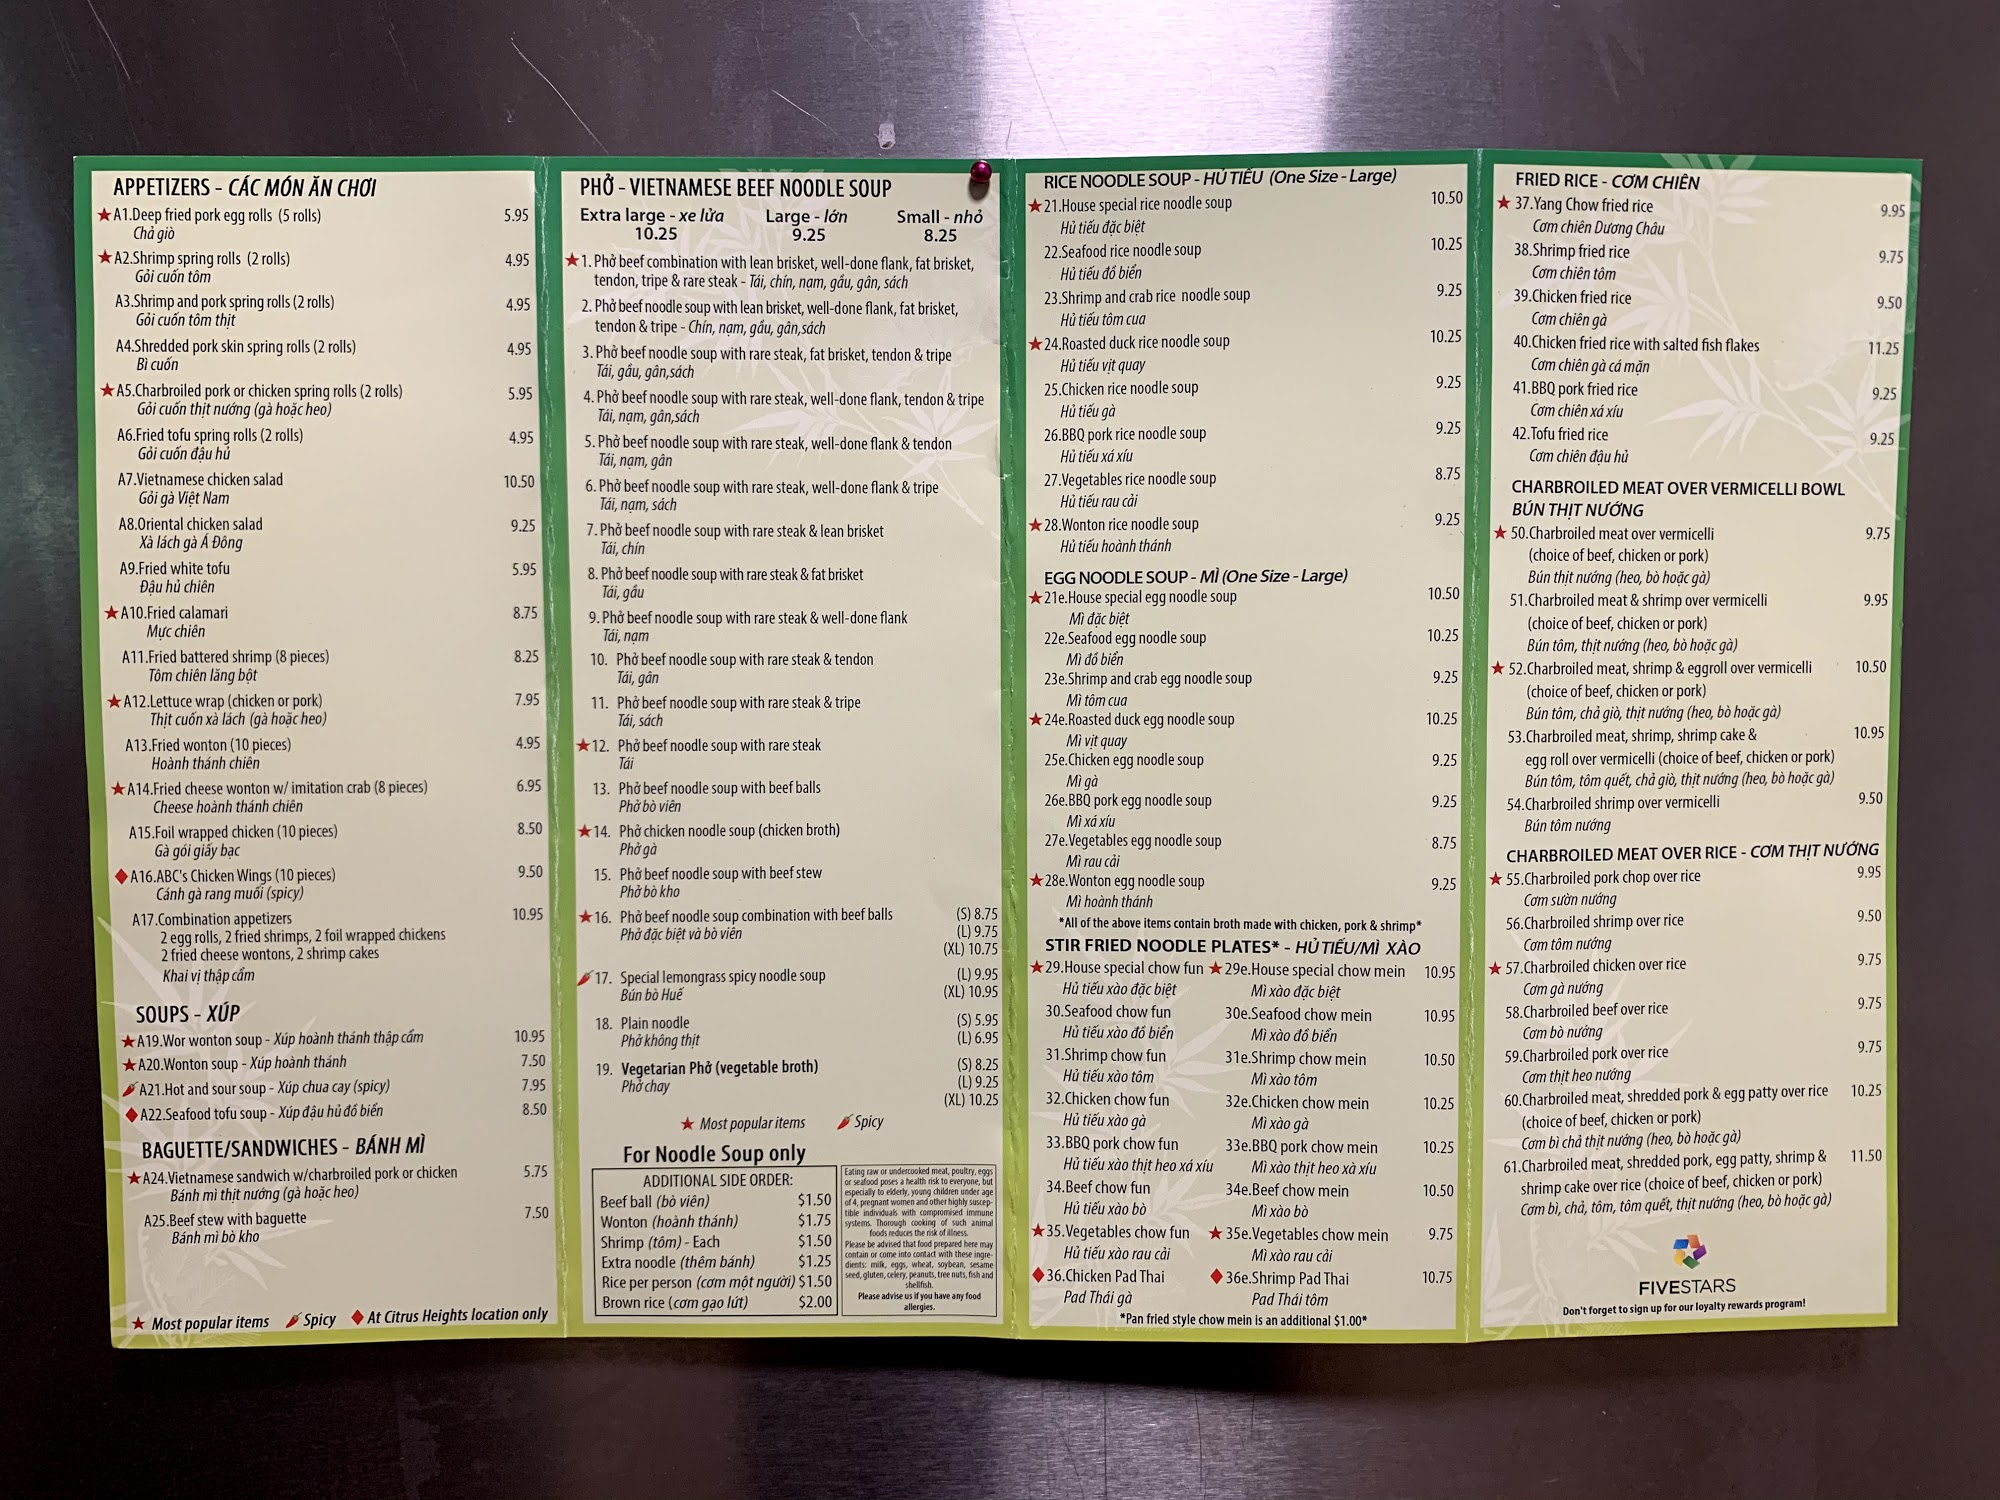 APPETIZERS - CÁC MÓN ĂN CHƠI
A1.Deep fried pork egg rolls (5 rolls) 5.95
Chả giò
A2.Shrimp spring rolls (2 rolls) 4.95
Gỏi cuốn tôm
A3.Shrimp and pork spring rolls (2 rolls) 4.95
Gỏi cuốn tôm thịt
A4.Shredded pork skin spring rolls (2 rolls) 4.95
Bì cuốn
A5.Charbroiled pork or chicken spring rolls (2 rolls) 5.95
Gỏi cuốn thịt nướng (gà hoặc heo)
A6.Fried tofu spring rolls (2 rolls) 4.95
Gỏi cuốn đậu hủ
A7.Vietnamese chicken salad 10.50
Gỏi gà Việt Nam
A8.Oriental chicken salad 9.25
Xà lách gà Á Đông
A9.Fried white tofu 5.95
Đậu hủ chiên
A10.Fried calamari 8.75
Mực chiên
A11.Fried battered shrimp (8 pieces) 8.25
Tôm chiên lăng bột
A12.Lettuce wrap (chicken or pork) 7.95
Thịt cuốn xà lách (gà hoặc heo)
A13.Fried wonton (10 pieces) 4.95
Hoành thánh chiên
A14.Fried cheese wonton w/ imitation crab (8 pieces) 6.95
Cheese hoành thánh chiên
A15.Foil wrapped chicken (10 pieces) 8.50
Gà gói giấy bạc
A16.ABC's Chicken Wings (10 pieces) 9.50
Cánh gà rang muối (spicy)
A17.Combination appetizers 10.95
2 egg rolls, 2 fried shrimps, 2 foil wrapped chickens
2 fried cheese wontons, 2 shrimp cakes
Khai vị thập cẩm
SOUPS - XÚP
A19.Wor wonton soup - Xúp hoành thánh thập cẩm 10.95
A20.Wonton soup - Xúp hoành thánh 7.50
A21.Hot and sour soup - Xúp chua cay (spicy) 7.95
A22.Seafood tofu soup - Xúp đậu hủ đồ biển 8.50
BAGUETTE/SANDWICHES - BÁNH MÌ
A24.Vietnamese sandwich w/charbroiled pork or chicken 5.75
Bánh mì thịt nướng (gà hoặc heo)
A25.Beef stew with baguette 7.50
Bánh mì bò kho
Most popular items Spicy At Citrus Heights location only
PHỞ - VIETNAMESE BEEF NOODLE SOUP
Extra large - xe lửa Large - lớn Small - nhỏ
10.25 9.25 8.25
1. Phở beef combination with lean brisket, well-done flank, fat brisket,
tendon, tripe & rare steak - Tái, chín, nạm, gầu, gân, sách
2. Phở beef noodle soup with lean brisket, well-done flank, fat brisket,
tendon & tripe - Chín, nạm, gầu, gân,sách
3. Phở beef noodle soup with rare steak, fat brisket, tendon & tripe
Tái, gầu, gân,sách
4. Phở beef noodle soup with rare steak, well-done flank, tendon & tripe
Tái, nạm, gân,sách
5. Phở beef noodle soup with rare steak, well-done flank & tendon
Tái, nạm, gân
6. Phở beef noodle soup with rare steak, well-done flank & tripe
Tái, nạm, sách
7. Phở beef noodle soup with rare steak & lean brisket
Tái, chín
8. Phở beef noodle soup with rare steak & fat brisket
Tái, gầu
9. Phở beef noodle soup with rare steak & well-done flank
Tái, nạm
10. Phở beef noodle soup with rare steak & tendon
Tái, gân
11. Phở beef noodle soup with rare steak & tripe
Tái, sách
12. Phở beef noodle soup with rare steak
Tái
13. Phở beef noodle soup with beef balls
Phở bò viên
14. Phở chicken noodle soup (chicken broth)
Phở gà
15. Phở beef noodle soup with beef stew
Phở bò kho
16. Phở beef noodle soup combination with beef balls (S) 8.75
Phở đặc biệt và bò viên (L) 9.75
(XL) 10.75
17. Special lemongrass spicy noodle soup (L) 9.95
Bún bò Huế (XL) 10.95
18. Plain noodle (S) 5.95
Phở không thịt (L) 6.95
19. Vegetarian Phở (vegetable broth) (S) 8.25
Phở chay (L) 9.25
(XL) 10.25
Most popular items Spicy
For Noodle Soup only
ADDITIONAL SIDE ORDER:
Beef ball (bò viên) $1.50
Wonton (hoành thánh) $1.75
Shrimp (tôm) - Each $1.50
Extra noodle (thêm bánh) $1.25
Rice per person (cơm một người) $1.50
Brown rice (cơm gạo lứt) $2.00
Eating raw or undercooked meat, poultry, eggs
or seafood poses a health risk to everyone, but
especially to elderly, young children under age
of 4, pregnant women and other highly suscep-
tible individuals with compromised immune
systems. Thorough cooking of such animal
foods reduces the risk of illness.
Please be advised that food prepared here may
contain or come into contact with these ingre-
dients: milk, eggs, wheat, soybean, sesame
seed, gluten, celery, peanuts, tree nuts, fish and
shellfish.
Please advise us if you have any food
allergies.
RICE NOODLE SOUP - HỦ TIẾU (One Size - Large)
21.House special rice noodle soup 10.50
Hủ tiếu đặc biệt
22.Seafood rice noodle soup 10.25
Hủ tiếu đồ biển
23.Shrimp and crab rice noodle soup 9.25
Hủ tiếu tôm cua
24.Roasted duck rice noodle soup 10.25
Hủ tiếu vịt quay
25.Chicken rice noodle soup 9.25
Hủ tiếu gà
26.BBQ pork rice noodle soup 9.25
Hủ tiếu xá xíu
27.Vegetables rice noodle soup 8.75
Hủ tiếu rau cải
28.Wonton rice noodle soup 9.25
Hủ tiếu hoành thánh
EGG NOODLE SOUP - MÌ (One Size - Large)
21e.House special egg noodle soup 10.50
Mì đặc biệt
22e.Seafood egg noodle soup 10.25
Mì đồ biển
23e.Shrimp and crab egg noodle soup 9.25
Mì tôm cua
24e.Roasted duck egg noodle soup 10.25
Mì vịt quay
25e.Chicken egg noodle soup 9.25
Mì gà
26e.BBQ pork egg noodle soup 9.25
Mì xá xíu
27e.Vegetables egg noodle soup 8.75
Mì rau cải
28e.Wonton egg noodle soup 9.25
Mì hoành thánh
*All of the above items contain broth made with chicken, pork & shrimp*
STIR FRIED NOODLE PLATES* - HỦ TIẾU/MÌ XÀO
29.House special chow fun 29e.House special chow mein 10.95
Hủ tiếu xào đặc biệt Mì xào đặc biệt
30.Seafood chow fun 30e.Seafood chow mein 10.95
Hủ tiếu xào đồ biển Mì xào đồ biển
31.Shrimp chow fun 31e.Shrimp chow mein 10.50
Hủ tiếu xào tôm Mì xào tôm
32.Chicken chow fun 32e.Chicken chow mein 10.25
Hủ tiếu xào gà Mì xào gà
33.BBQ pork chow fun 33e.BBQ pork chow mein 10.25
Hủ tiếu xào thịt heo xá xíu Mì xào thịt heo xà xíu
34.Beef chow fun 34e.Beef chow mein 10.50
Hủ tiếu xào bò Mì xào bò
35.Vegetables chow fun 35e.Vegetables chow mein 9.75
Hủ tiếu xào rau cải Mì xào rau cải
36.Chicken Pad Thai 36e.Shrimp Pad Thai 10.75
Pad Thái gà Pad Thái tôm
*Pan fried style chow mein is an additional $1.00*
FRIED RICE - CƠM CHIÊN
37.Yang Chow fried rice 9.95
Cơm chiên Dương Châu
38.Shrimp fried rice 9.75
Cơm chiên tôm
39.Chicken fried rice 9.50
Cơm chiên gà
40.Chicken fried rice with salted fish flakes 11.25
Cơm chiên gà cá mặn
41.BBQ pork fried rice 9.25
Cơm chiên xá xíu
42.Tofu fried rice 9.25
Cơm chiên đậu hủ
CHARBROILED MEAT OVER VERMICELLI BOWL
BÚN THỊT NƯỚNG
50.Charbroiled meat over vermicelli 9.75
(choice of beef, chicken or pork)
Bún thịt nướng (heo, bò hoặc gà)
51.Charbroiled meat & shrimp over vermicelli 9.95
(choice of beef, chicken or pork)
Bún tôm, thịt nướng (heo, bò hoặc gà)
52.Charbroiled meat, shrimp & eggroll over vermicelli 10.50
(choice of beef, chicken or pork)
Bún tôm, chả giò, thịt nướng (heo, bò hoặc gà)
53.Charbroiled meat, shrimp, shrimp cake & 10.95
egg roll over vermicelli (choice of beef, chicken or pork)
Bún tôm, tôm quết, chả giò, thịt nướng (heo, bò hoặc gà)
54.Charbroiled shrimp over vermicelli 9.50
Bún tôm nướng
CHARBROILED MEAT OVER RICE - CƠM THỊT NƯỚNG
55.Charbroiled pork chop over rice 9.95
Cơm sườn nướng
56.Charbroiled shrimp over rice 9.50
Cơm tôm nướng
57.Charbroiled chicken over rice 9.75
Cơm gà nướng
58.Charbroiled beef over rice 9.75
Cơm bò nướng
59.Charbroiled pork over rice 9.75
Cơm thịt heo nướng
60.Charbroiled meat, shredded pork & egg patty over rice 10.25
(choice of beef, chicken or pork)
Cơm bì chả thịt nướng (heo, bò hoặc gà)
61.Charbroiled meat, shredded pork, egg patty, shrimp & 11.50
shrimp cake over rice (choice of beef, chicken or pork)
Cơm bì, chả, tôm, tôm quết, thịt nướng (heo, bò hoặc gà)
FIVESTARS
Don't forget to sign up for our loyalty rewards program!